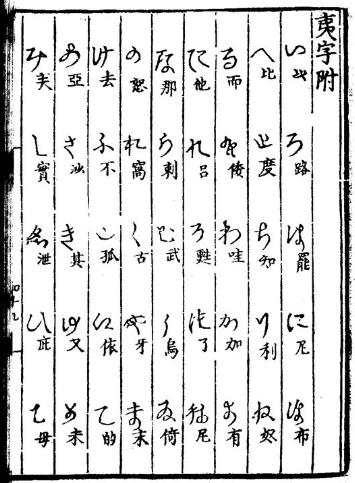 夷字附
い ろ路 は罷 に尼 ほ布
へ比 と度 ち知 り利 ぬ奴
る而 を わ哇 か加 よ有
た他 れ呂 そ甦 つ了 ね尼
な那 ら剌 む武 う烏 ゐ倚
の怒 お窩 く古 や牙 ま末
け去 ふ不 こ孤 え依 て的
あ亞 さ沙 き其 ゆ又 め未
み し實 ゑ泄 ひ庇 も母